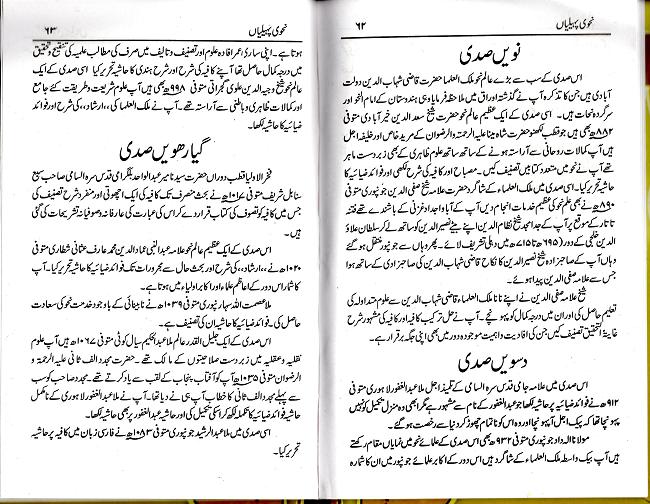 ۶۲ نحوی پہیلیاں
نویں صدی
اس صدی کے سب سے بڑے عالم نحو ملک العلما حضرت قاضی شہاب الدین دولت
آبادی ہیں جن کا تذکرہ آپ نے گذشتہ اوراق میں ملاحظہ فرمایا وہی ہندوستان کے امام النحو اور
سرگروہ نحات ہیں۔ اسی صدی کے ایک عظیم عالم نحو حضرت شیخ سعد الدین خیرآبادی متوفی
۸۸۲ھ بھی ہیں جو قطب لکھنو حضرت شاہ مینا علیہ الرحمۃ والرضوان کے مرید خاص اور خلیفہ اجل
ہیں آپ کمالات روحانی سے آراستہ ہونے کے ساتھ ساتھ علوم ظاہری کے بھی زبردست ماہر
تھے آپ نے نحو میں متعدد کتابیں تصنیف کیں۔ مصباح اور کافیہ کی شرح لکھی اور فوائد ضیائیہ کا
حاشیہ تحریر کیا۔ اسی صدی میں ملک العلماء کے شاگرد حضرت علامہ شیخ صفی الدین جونپوری متوفی
۸۹۰ھ نے بھی علم نحو کی عظیم خدمات انجام دیں آپ کے آباء واجداد غزنی کے باشندے تھے فتنہ
تاتار کے موقع پر آپ کے جد امجد شیخ نظام الدین اپنے بیٹے نصیر الدین کو ساتھ لے کر سلطان علاؤ
الدین خلجی کے دور (۶۹۵ھ تا ۷۱۵ھ) میں دہلی تشریف لائے۔ پھر وہاں سے جونپور منتقل ہو گئے
وہاں آپ کے صاحبزادہ شیخ نصیر الدین کا نکاح قاضی شہاب الدین کی صاحبزادی کے ساتھ ہوا
جس سے علامہ صفی الدین پیدا ہوئے۔
شیخ علامہ صفی الدین نے اپنے نانا ملک العلماء قاضی شہاب الدین سے علوم متداولہ کی
تعلیم حاصل کی اور ان میں درجہ کمال کو پہونچے۔ آپ نے حل ترکیب کافیہ اور کافیہ کی مشہور شرح
غایۃ التحقیق تصنیف کیں جن کی افادیت و اہمیت موجودہ دور میں بھی اپنی جگہ برقرار ہے۔
دسویں صدی
اس صدی میں علامہ جامی قدس سرہ السامی کے تلمیذ اجل ملا عبدالغفور لاہوری متوفی
۹۱۲ھ نے فوائد ضیائیہ پر حاشیہ لکھا جو عبدالغفور کے نام سے مشہور ہے مگر ابھی وہ منزل تکمیل کو نہیں
پہونچا تھا کہ پیک اجل آ پہونچا اور وہ اس کو ناتمام چھوڑ کر دنیا سے رخصت ہو گئے۔
مولانا الہداد جونپوری متوفی ۹۳۲ھ بھی اس صدی کے علمائے نحو میں نمایاں مقام رکھتے
ہیں آپ بیک واسطہ ملک العلماء کے شاگرد ہیں اس دور کے اکابر علمائے جونپور میں ان کا شمار
نحوی پہیلیاں ۶۳
ہوتا ہے۔ اپنی ساری عمر افادہ علوم اور تصنیف و تالیف میں صرف کی مطالب علمیہ کی تنقیح و تحقیق
میں درجہ کمال حاصل تھا آپ نے کافیہ کی شرح اور شرح ہندی کا حاشیہ تحریر کیا اسی صدی کے ایک
عالم نحو شیخ وجیہ الدین علوی گجراتی متوفی ۹۹۸ھ بھی ہیں آپ علوم شریعت و طریقت کے جامع
اور کمالات ظاہری و باطنی سے آراستہ تھے۔ آپ نے ملک العلماء کی ،،ارشاد،، کی شرح اور فوائد
ضیائیہ کا حاشیہ لکھا۔
گیارھویں صدی
فخر الاولیا قطب دوراں حضرت سیدنا میر عبدالواحد بلگرامی قدس سرہ السامی صاحب سبع
سنابل شریف متوفی ۱۰۱۷ھ نے بحث منصرف تک کافیہ کی ایک اچھوتی اور منفرد شرح تصنیف کی
جس میں کافیہ کو تصوف کی کتاب قرار دے کر اس کی عبارت کی عارفانہ و صوفیانہ تشریحات کی گئی
ہیں۔
اس صدی کے ایک عظیم عالم نحو علامہ عبدالنبی عماد الدین محمد عارف عثمانی شطاری متوفی
۱۰۲۰ھ نے ،،ارشاد،، کی شرح اور بحث حال سے مجرورات تک فوائد ضیائیہ کا حاشیہ تحریر کیا۔ آپ
کا شمار اس دور کے اعاظم علماء اور اکابر اولیاء میں ہوتا ہے۔
ملا عصمت اللہ سہارنپوری متوفی ۱۰۳۹ھ نے نابینائی کے باوجود خدمت نحو کی سعادت
حاصل کی۔ فوائد ضیائیہ کا حاشیہ ان کی تصنیف ہے۔
اسی صدی کے ایک جلیل القدر عالم ملا عبدالحکیم سیالکوٹی متوفی ۱۰۶۷ھ ہیں آپ علوم
نقلیہ و عقلیہ میں زبردست صلاحیتوں کے مالک تھے۔ حضرت مجدد الف ثانی علیہ الرحمۃ و
الرضوان متوفی ۱۰۳۵ھ آپ کو آفتاب پنجاب کے لقب سے یاد کرتے تھے۔ مجدد صاحب کو سب
سے پہلے مجدد الف ثانی کا خطاب آپ ہی نے دیا تھا۔ آپ نے ملا عبدالغفور لاہوری کے نامکمل
حاشیہ فوائد ضیائیہ کا تکملہ لکھ کر اس کی تکمیل کی اور حاشیہ عبدالغفور پر بھی حاشیہ لکھا۔
اسی صدی میں ملا عبدالرشید جونپوری متوفی ۱۰۸۳ھ نے فارسی زبان میں کافیہ پر حاشیہ
تحریر کیا۔